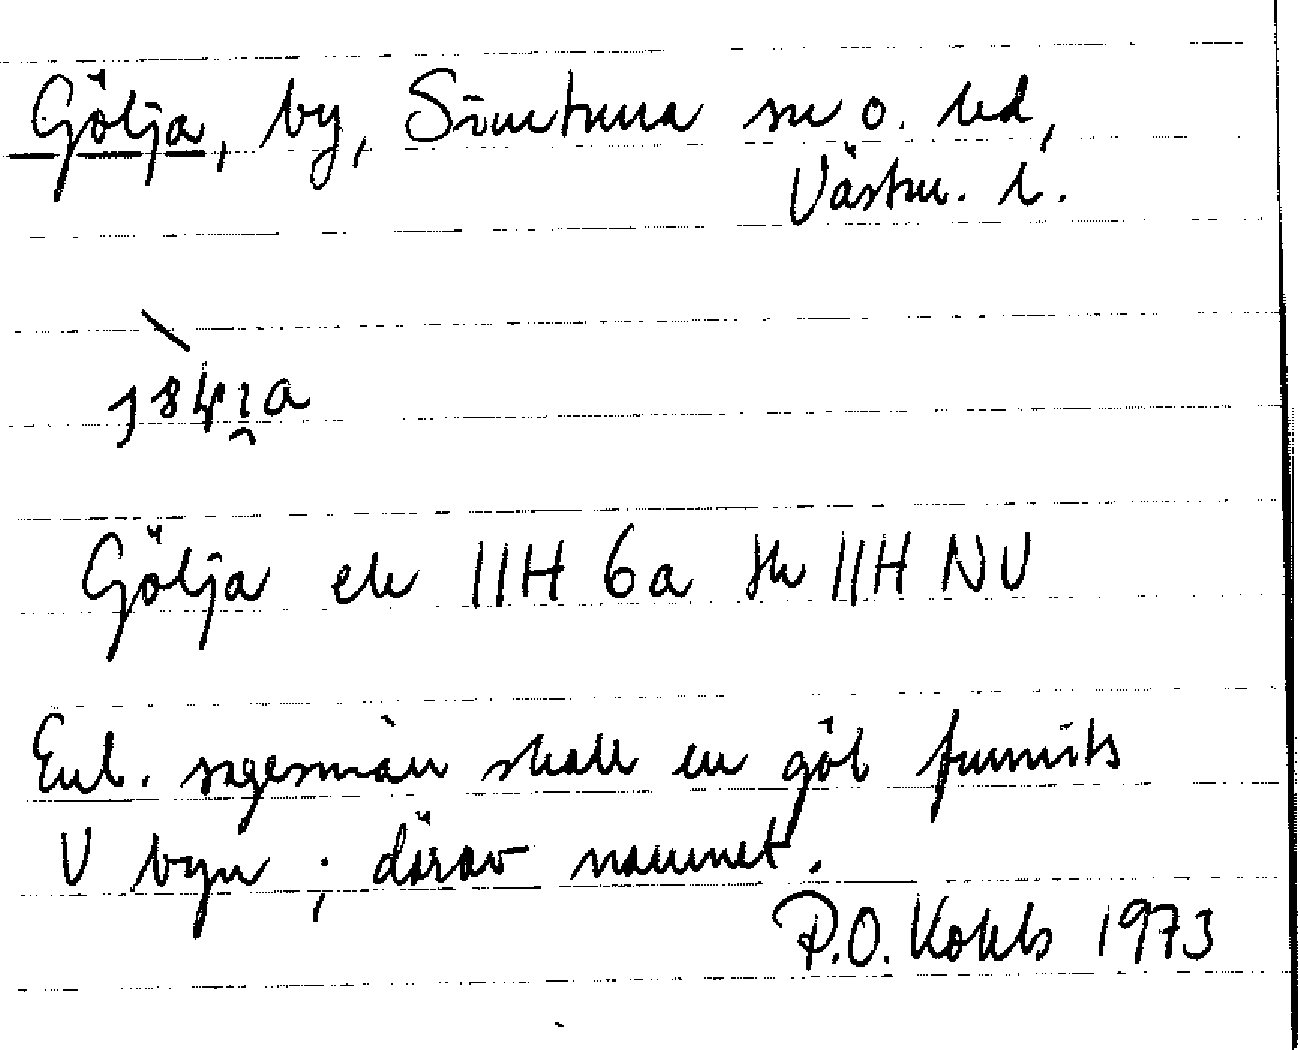 Gölja, by, Simtuna sn o. hd,
Västm. l.
Gölja ek 11H 6a tk 11H NV
Enl. sagesmän skall en göl funnits
V byn ; därav namnet.
P.O. Kokls 1973